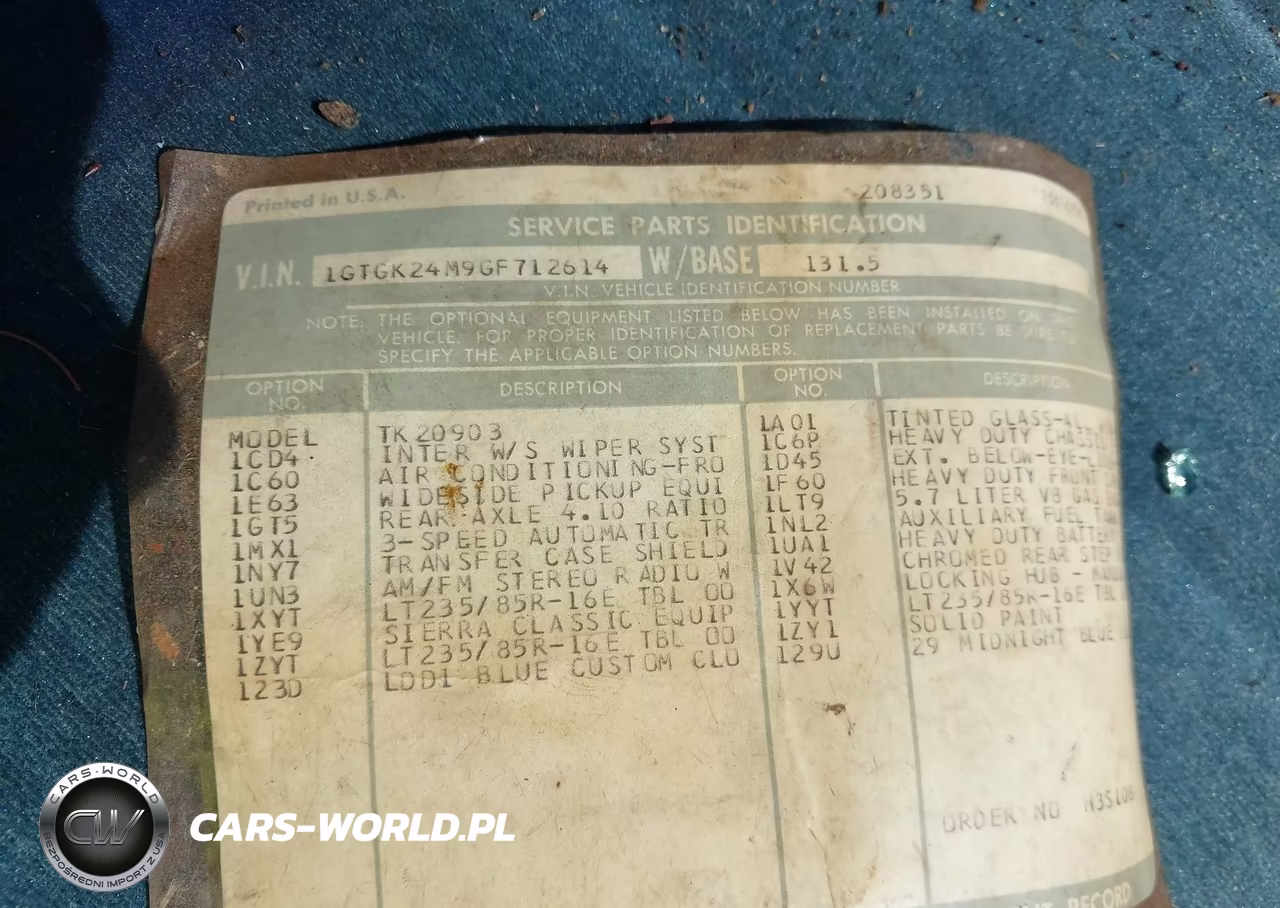 Printed in U.S.A. 208351
SERVICE PARTS IDENTIFICATION
V.I.N. 1GTGK24M9GF712614 W/BASE 131.5
V.I.N. VEHICLE IDENTIFICATION NUMBER
NOTE: THE OPTIONAL EQUIPMENT LISTED BELOW HAS BEEN INSTALLED ON
VEHICLE. FOR PROPER IDENTIFICATION OF REPLACEMENT PARTS BE SURE TO
SPECIFY THE APPLICABLE OPTION NUMBERS.
OPTION NO. DESCRIPTION OPTION NO. DESCRIPTION
MODEL TK20903 1A01 TINTED GLASS-
1CD4 INTER W/S WIPER SYST 1C6P HEAVY DUTY
1C60 AIR CONDITIONING-FRO 1D45 EXT. BELOW-EYE-
1E63 WIDESIDE PICKUP EQUI 1F60 HEAVY DUTY FRONT
1GT5 REAR AXLE 4.10 RATIO 1LT9 5.7 LITER V8 GAS
1MX1 3-SPEED AUTOMATIC TR 1NL2 AUXILIARY FUEL
1NY7 TRANSFER CASE SHIELD 1UA1 HEAVY DUTY BATTERY
1UN3 AM/FM STEREO RADIO W 1V42 CHROMED REAR STEP
1XYT LT235/85R-16E TBL OO 1X6W LOCKING HUB -
1YE9 SIERRA CLASSIC EQUIP 1YYT LT235/85R-16E TBL
1ZYT LT235/85R-16E TBL OO 1ZY1 SOLID PAINT
123D LDD1 BLUE CUSTOM CLO 129U 29 MIDNIGHT BLUE
ORDER NO
RECORD
CARS-WORLD
CW
BEZPOŚREDNI IMPORT Z USA
CARS-WORLD.PL